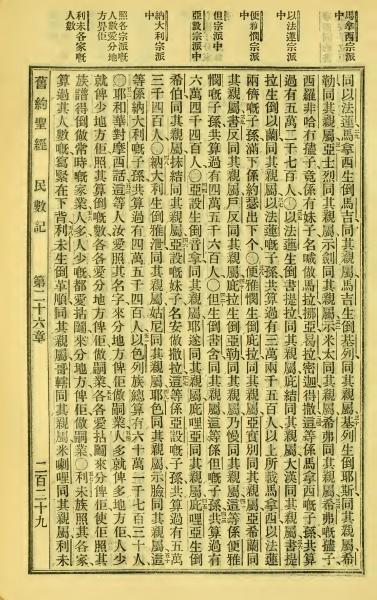 瑪拿西宗派
中
以法蓮宗派
中
便雅憫宗派
中
但宗派中
亞設宗派中
納大利宗派
中
照各宗派嘅
人數愛分地
方畀佢
利未各家嘅
人數
同以法蓮馬拿西生倒馬吉同其親屬馬吉生倒基列同其親屬基列生倒耶斯同其親屬希
勒同其親屬亞士烈同其親屬示劍同其親屬示米太同其親屬希弗同其親屬希弗嘅儘子
西羅非哈冇儘子竟係有妹子名喊做馬拉挪亞曷拉密迦得撒這等係馬拿西嘅子孫共算
過有五萬二千七百人〇以法蓮生倒書提拉同其親屬庇結同其親屬大漢同其親屬書提
拉生倒以蘭同其親屬以法蓮嘅子孫共算過有三萬兩千五百人以上所載馬拿西以法蓮
兩儕嘅子孫滿下係約瑟出下个〇便雅憫生倒庇拉同其親屬亞實別同其親屬亞希蘭同
其親屬書反同其親屬戶反同其親屬庇拉生倒亞勒同其親屬乃慢同其親屬這等係便雅
憫嘅子孫共算過有四萬五千六百人〇但生倒書含同其親屬這等係但嘅子孫共算過有
六萬四千四百人〇亞設生倒音拿同其親屬耶遂同其親屬庇哩亞同其親屬庇哩亞生倒
希伯同其親屬抹結同其親屬亞設嘅妹子名安做撒拉這等係亞設嘅子孫共算過有五萬
三千四百人〇納大利生倒雅泄同其親屬姑尼同其親屬耶色同其親屬示臉同其親屬這
等係納大利嘅子孫共算過有四萬五千四百人以色列族總算有六十萬一千七百三十人
〇耶和華對摩西話這等人汝愛照其名字來分地方俾佢做嗣業人多就俾多地方佢人少
就俾少地方佢照其算倒嘅數各各愛分地方俾佢做嗣業各各愛拈鬮來分俾佢使佢照其
族譜得倒做常時嘅家業人多人少嘅都愛拈鬮來分地方俾佢做嗣業〇利未族照其各家
算過其人數嘅寫緊在下背利未生倒革順同其親屬哥轄同其親屬米喇哩同其親屬利未
舊約聖經 民數記 第二十六章 二百二十九